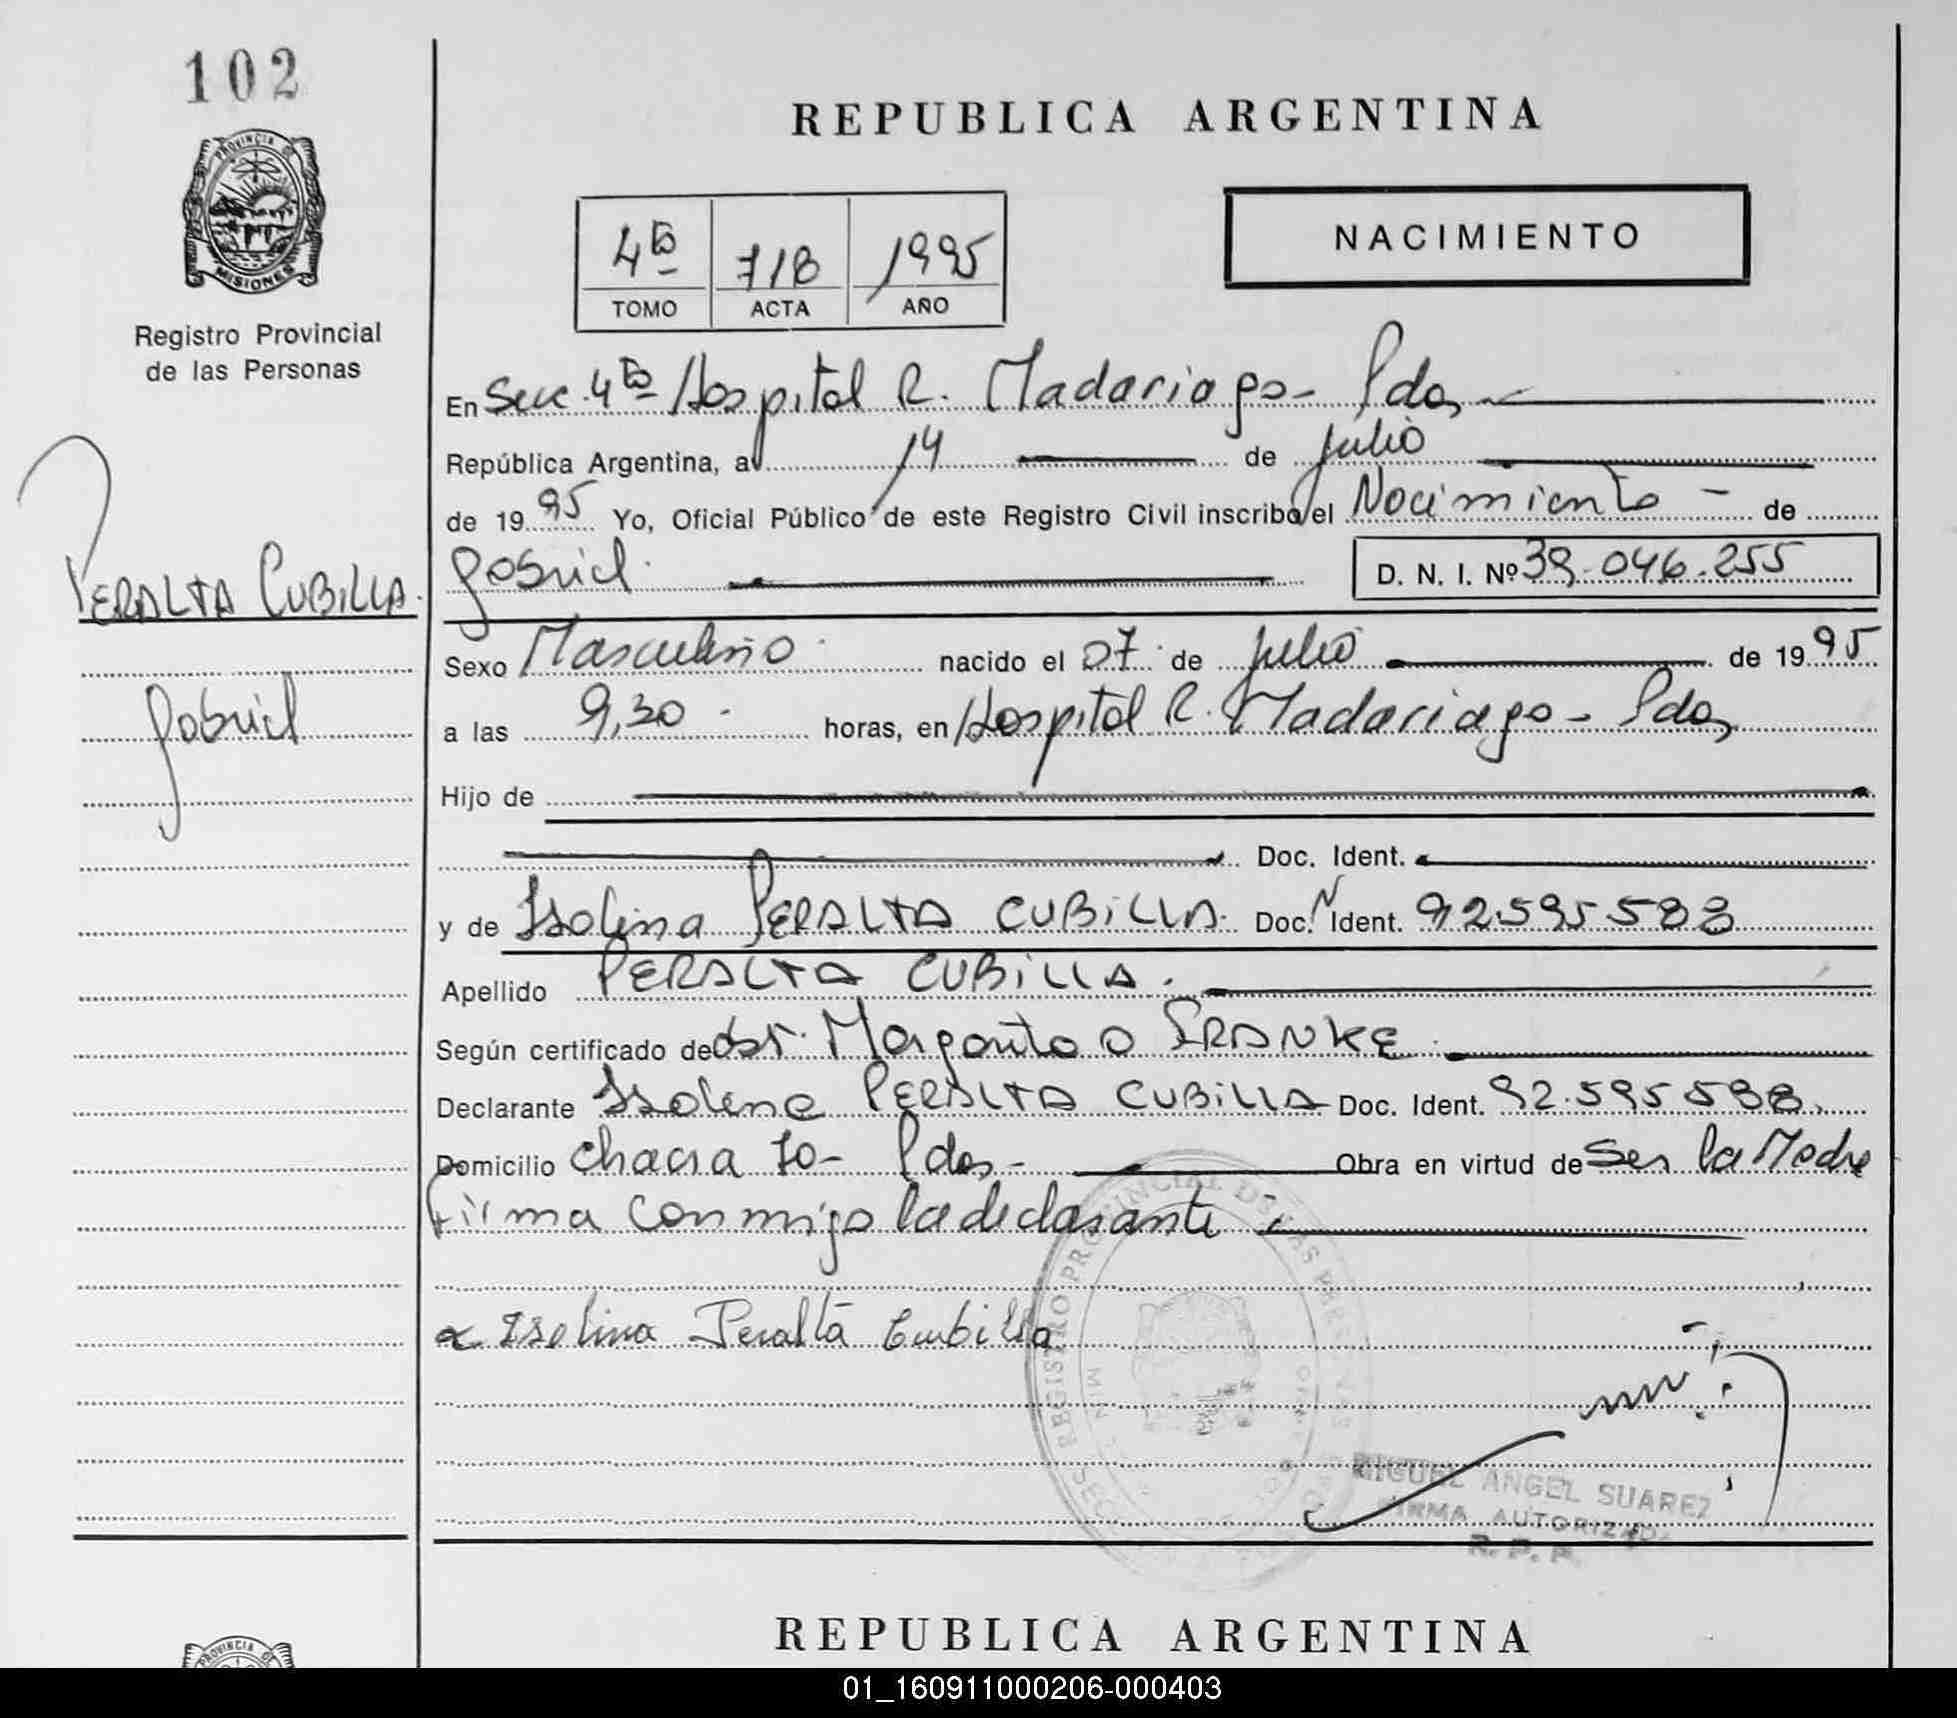 102
PROVINCIA DE
MISIONES
Registro Provincial
de las Personas
PERALTA CUBILLA.
Gabriel
REPUBLICA ARGENTINA
4ta 718 1995
TOMO ACTA AÑO
NACIMIENTO
En Secc. 4ta Hospital R. Madariaga - Pdas,
República Argentina, a 14 de julio
de 1995 Yo, Oficial Público de este Registro Civil inscribo el Nacimiento - de
Gabriel. D. N. I. Nº 39.046.255
Sexo Masculino. nacido el 07 de julio de 1995
a las 9,30 - horas, en Hospital R. Madariaga - Pdas,
Hijo de
Doc. Ident.
y de Isolina PERALTA CUBILLA. Doc. Ident. 92.595.588
Apellido PERALTA CUBILLA.
Según certificado de obst. Margarita O FRANKE
Declarante Isolina PERALTA CUBILLA Doc. Ident. 92.595.588,
Domicilio Chacra 70 - Pdas, - Obra en virtud de Ser la Madre
Firma conmigo la declarante
Isolina Peralta Cubilla
REGISTRO PROVINCIAL DE LAS PERSONAS
MIGUEL ANGEL SUAREZ
FIRMA AUTORIZADA
R. P. P.
REPUBLICA ARGENTINA
PROVINCIA DE
01_160911000206-000403